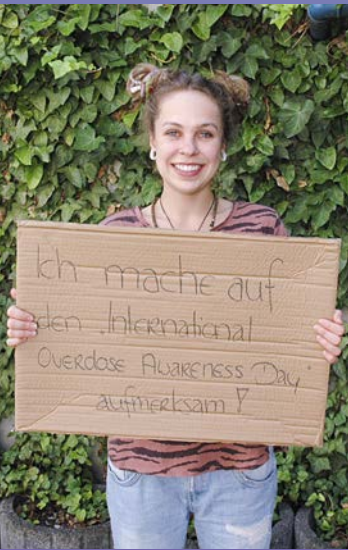 Ich mache auf
den "International
Overdose Awareness Day"
aufmerksam!